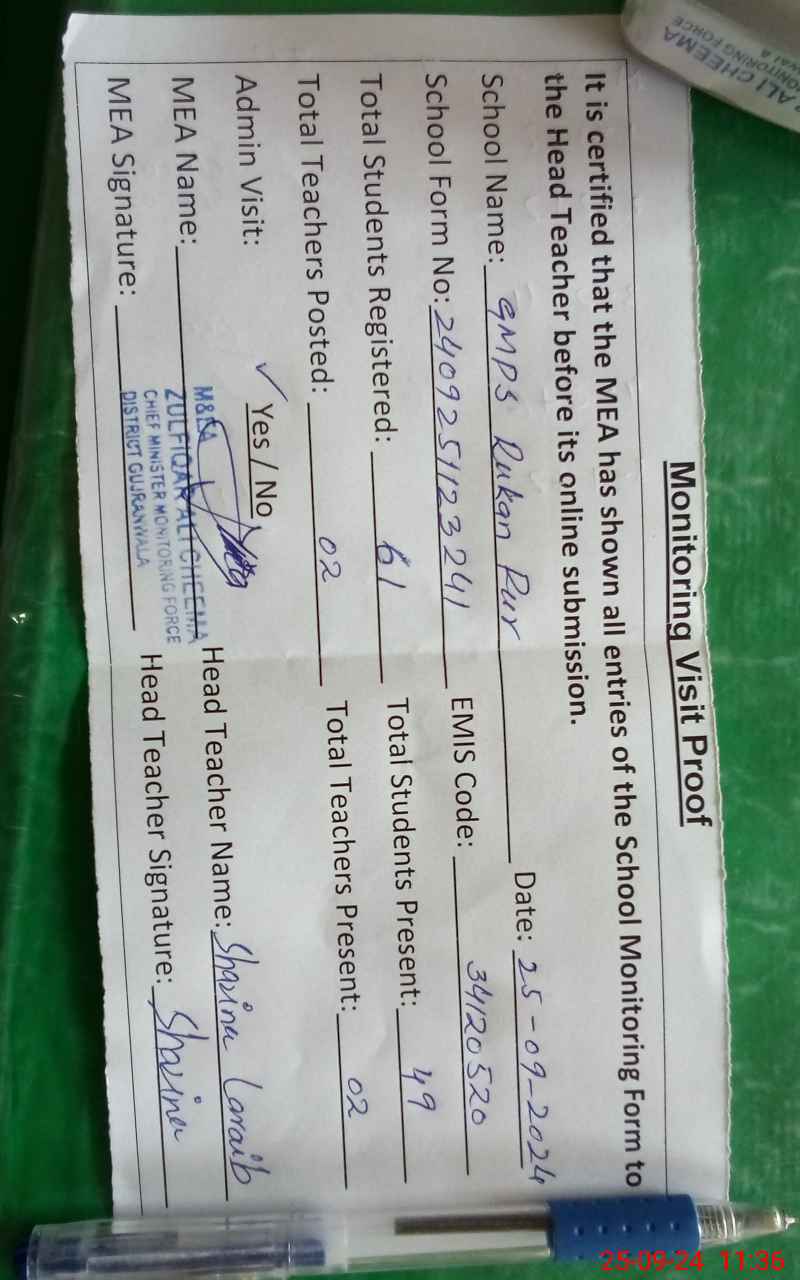 Monitoring Visit Proof
It is certified that the MEA has shown all entries of the School Monitoring Form to
the Head Teacher before its online submission.
School Name: GMPS Rukan Pur Date: 25-09-2024
School Form No: 2409254123241 EMIS Code: 34120520
Total Students Registered: 61 Total Students Present: 49
Total Teachers Posted: 02 Total Teachers Present: 02
Admin Visit: ✓ Yes / No
M&EA
MEA Name: ZULFIQAR ALI CHEEMA Head Teacher Name: Shazina Laraib
CHIEF MINISTER MONITORING FORCE
MEA Signature: DISTRICT GUJRANWALA Head Teacher Signature: Shazina
ALI CHEEMA
MONITORING FORCE
25-09-24 11:36